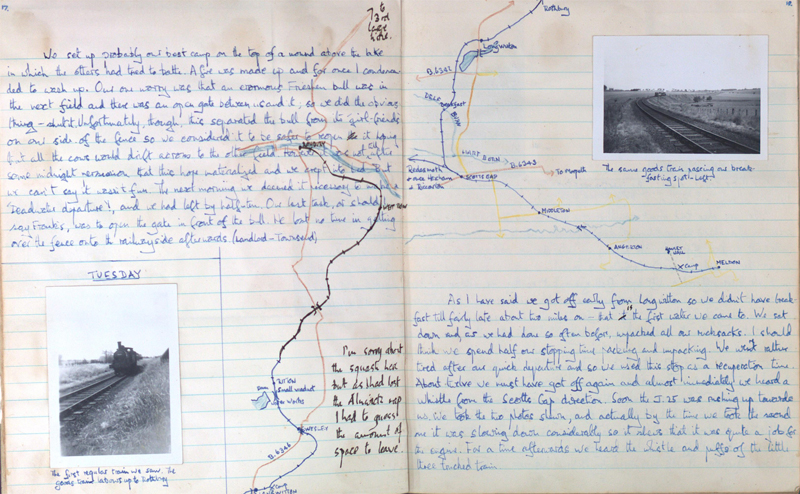 17.
to
3rd
page
here.
We set up probably our best camp on the top of a mound above the lake
in which the others had tried to bathe. A fire was made up and for once I condescen-
ded to wash up. Our one worry was that an enormous Friesian bull was in
the next field and there was an open gate between us and it, so we did the obvious
thing – shut it. Unfortunately, though, this separated the bull from its girl-friends
on our side of the fence so we considered it to be safer to reopen it hoping
that all the cows would drift across to the other field. It was not till after
some midnight persuasion that this hope materialized and we crept into bed.
we can't say it wasn't fun. The next morning we deemed it necessary to
departure, and we had left by half-ten. Our last task, or should I
say Frank's, was to open the gate in front of the bull. He lost no time in getting
over the fence onto the railway side afterwards. (Landlord - Townsend)
TUESDAY
The first regular train we saw. The
goods train labours up to Rothbury
Dam
Small
Works
Wesley
B.6246
Camp
I'm sorry about
the squash here
but as I had lost
the Almighty map
I had to guess
the amount of
space to leave.
18.
Rothbury
Longwitton
B.6342
Breakfast
HART BURN
B6343
To Morpeth
Reedsmouth
once Hexham
& Riccarton
SCOTTS GAP
MIDDLETON
ANGERTON
Camp
MELDON
The same goods train passing our break-
fasting spot. Left.
As I have said we got off early from Longwitton so we didn't have break-
fast till fairly late about two miles on – that is the first water we came to. We sat
down and, as we had done so often before, unpacked all our rucksacks. I should
think we spend half our stopping time packing and unpacking. We were rather
tired after our quick departure and so we used this stop as a recuperation time.
About twelve we must have got off again and almost immediately we heard a
whistle from the Scotts Gap direction. Soon the J.25 was rushing up towards
us. We took the two photos shown, and actually by the time we took the second
one it was slowing down considerably so it shows that it was quite a job for
the engine. For a time afterwards we heard the whistle and puffs of the little
three trucked train.